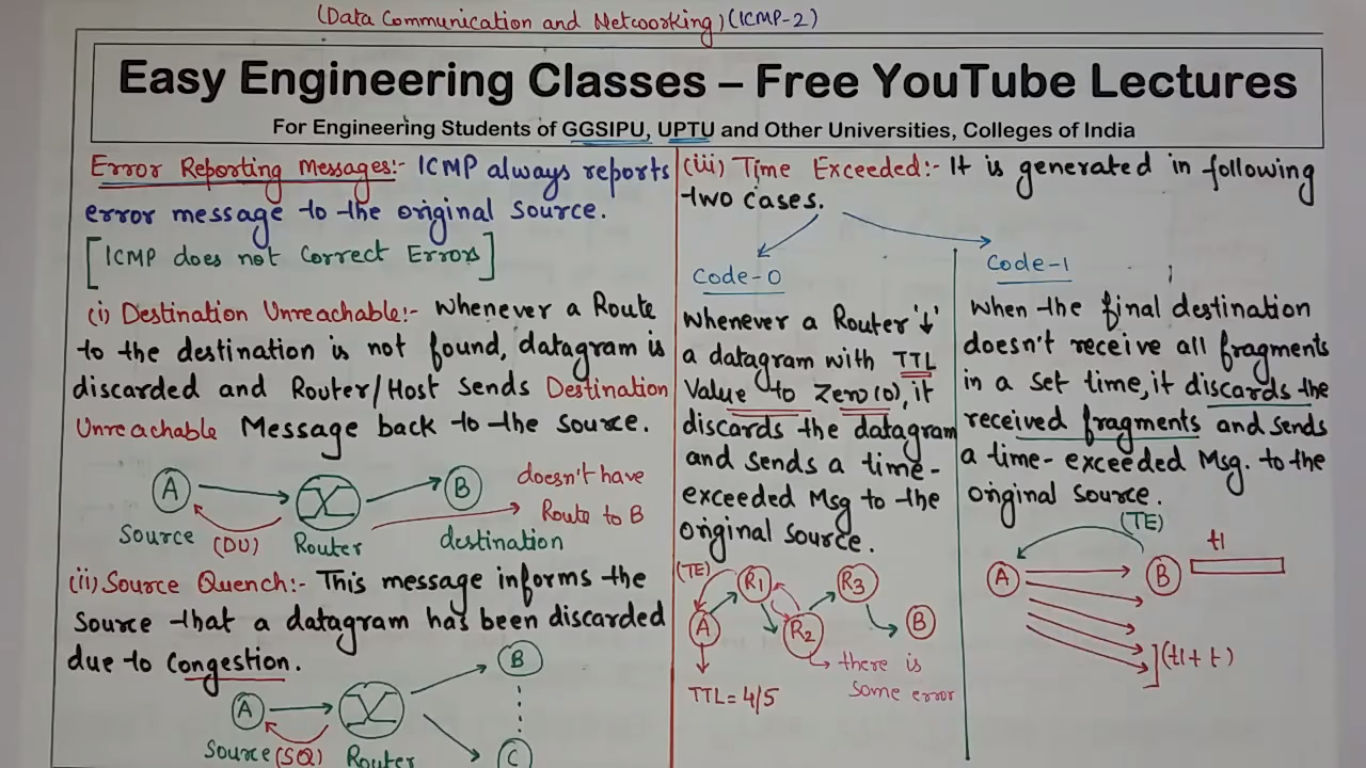 (Data Communication and Networking) (ICMP-2)
Easy Engineering Classes – Free YouTube Lectures
For Engineering Students of GGSIPU, UPTU and Other Universities, Colleges of India
Error Reporting Messages:- ICMP always reports
error message to the original Source.
[ICMP does not Correct Errors]
(i) Destination Unreachable:- Whenever a Route
to the destination is not found, datagram is
discarded and Router/Host Sends Destination
Unreachable Message back to the source.
A
B
doesn't have
Route to B
Source
(DU)
Router
destination
(ii) Source Quench:- This message informs the
Source that a datagram has been discarded
due to Congestion.
B
A
Source (SQ) Router
C
(iii) Time Exceeded:- It is generated in following
two cases.
Code-0
Whenever a Router '↓'
a datagram with TTL
Value to Zero (0), it
discards the datagram
and sends a time-
exceeded Msg to the
original source.
(TE)
R1
R3
A
R2
B
there is
Some error
TTL = 4/5
Code-1
When the final destination
doesn't receive all fragments
in a set time, it discards the
received fragments and sends
a time-exceeded Msg. to the
original source.
(TE)
t1
A
B
(t1 + t)